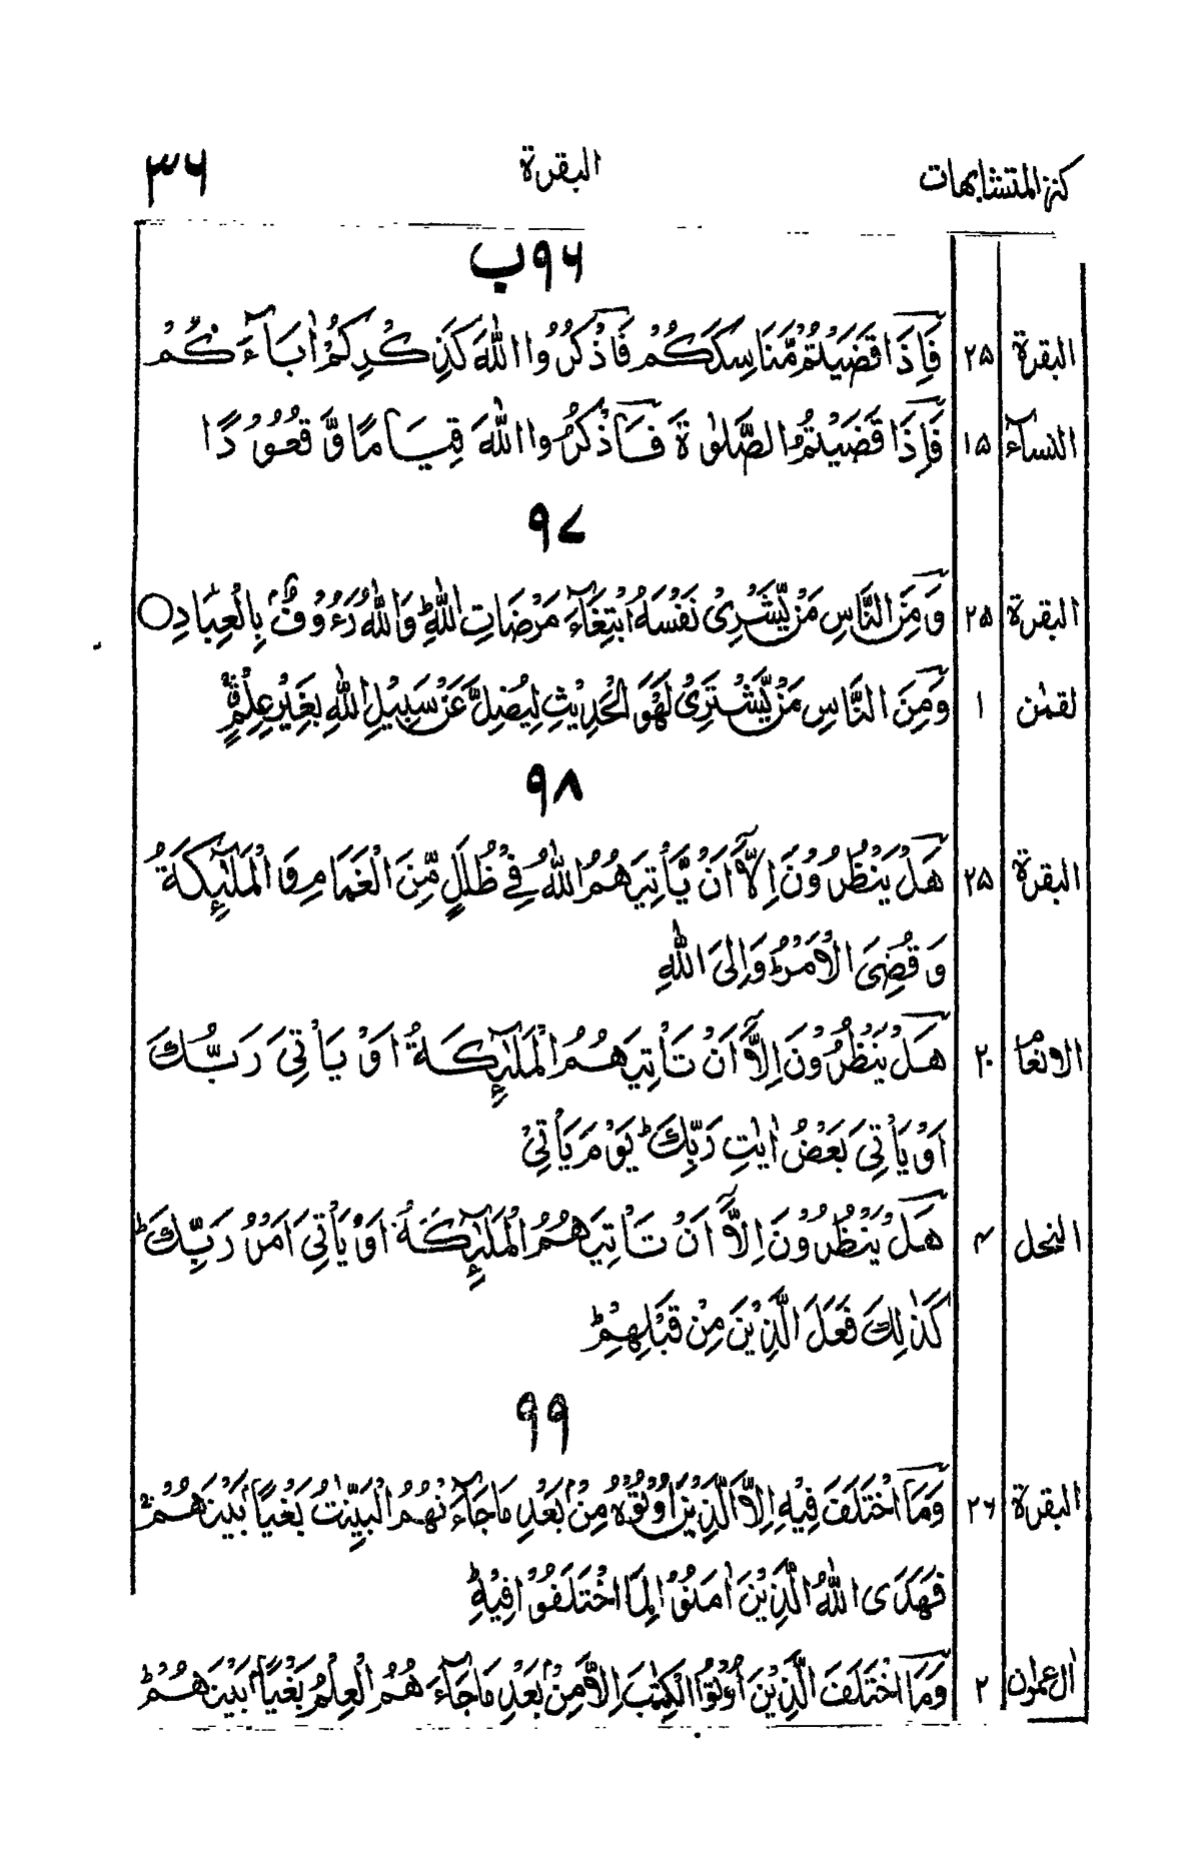 كنز المتشابهات البقرة ٣٦
٩٦ب
البقرة ٢٥ فَاِذَا قَضَيْتُمْ مَّنَاسِكَكُمْ فَاذْكُرُوا اللّٰهَ كَذِكْرِكُمْ اٰبَآءَكُمْ
النسآء ١٥ فَاِذَا قَضَيْتُمُ الصَّلٰوةَ فَاذْكُرُوا اللّٰهَ قِيَامًا وَّ قُعُوْدًا
٩٧
البقرة ٢٥ وَمِنَ النَّاسِ مَنْ يَّشْرِىْ نَفْسَهُ ابْتِغَآءَ مَرْضَاتِ اللّٰهِ ؕ وَاللّٰهُ رَءُوْفٌۢ بِالْعِبَادِ ○
لقمٰن ١ وَمِنَ النَّاسِ مَنْ يَّشْتَرِىْ لَهْوَ الْحَدِيْثِ لِيُضِلَّ عَنْ سَبِيْلِ اللّٰهِ بِغَيْرِ عِلْمٍ ۖۗ
٩٨
البقرة ٢٥ هَلْ يَنْظُرُوْنَ اِلَّآ اَنْ يَّاْتِيَهُمُ اللّٰهُ فِىْ ظُلَلٍ مِّنَ الْغَمَامِ وَ الْمَلٰٓئِكَةُ
وَ قُضِىَ الْاَمْرُ ؕ وَاِلَى اللّٰهِ
الانعام ٢٠ هَلْ يَنْظُرُوْنَ اِلَّآ اَنْ تَاْتِيَهُمُ الْمَلٰٓئِكَةُ اَوْ يَاْتِىَ رَبُّكَ
اَوْ يَاْتِىَ بَعْضُ اٰيٰتِ رَبِّكَ ؕ يَوْمَ يَاْتِىْ
النحل ٤ هَلْ يَنْظُرُوْنَ اِلَّآ اَنْ تَاْتِيَهُمُ الْمَلٰٓئِكَةُ اَوْ يَاْتِىَ اَمْرُ رَبِّكَ ؕ
كَذٰلِكَ فَعَلَ الَّذِيْنَ مِنْ قَبْلِهِمْ ؕ
٩٩
البقرة ٢٦ وَمَا اخْتَلَفَ فِيْهِ اِلَّا الَّذِيْنَ اُوْتُوْهُ مِنْۢ بَعْدِ مَا جَآءَتْهُمُ الْبَيِّنٰتُ بَغْيًاۢ بَيْنَهُمْ ۚ
فَهَدَى اللّٰهُ الَّذِيْنَ اٰمَنُوْا لِمَا اخْتَلَفُوْا فِيْهِ ؕ
اٰل عمرٰن ٢ وَمَا اخْتَلَفَ الَّذِيْنَ اُوْتُوا الْكِتٰبَ اِلَّا مِنْۢ بَعْدِ مَا جَآءَ هُمُ الْعِلْمُ بَغْيًاۢ بَيْنَهُمْ ؕ